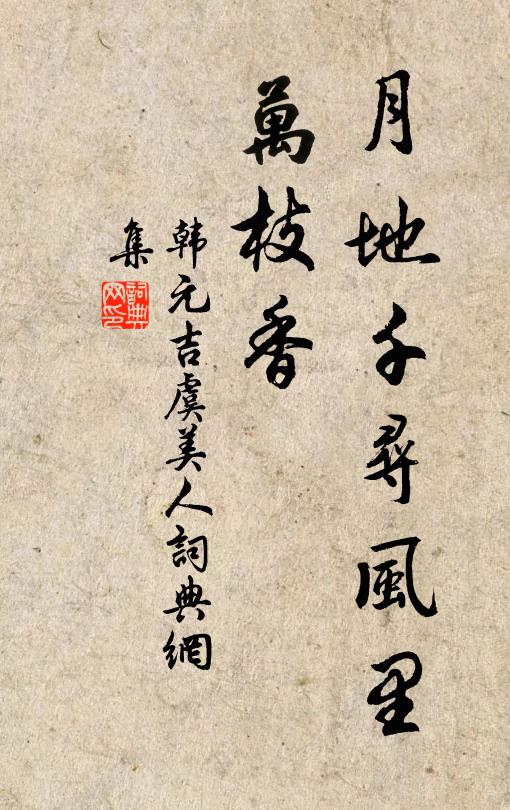 月地千尋風里
萬枝香
韩元吉虞美人詞典網
集
詞典
网印